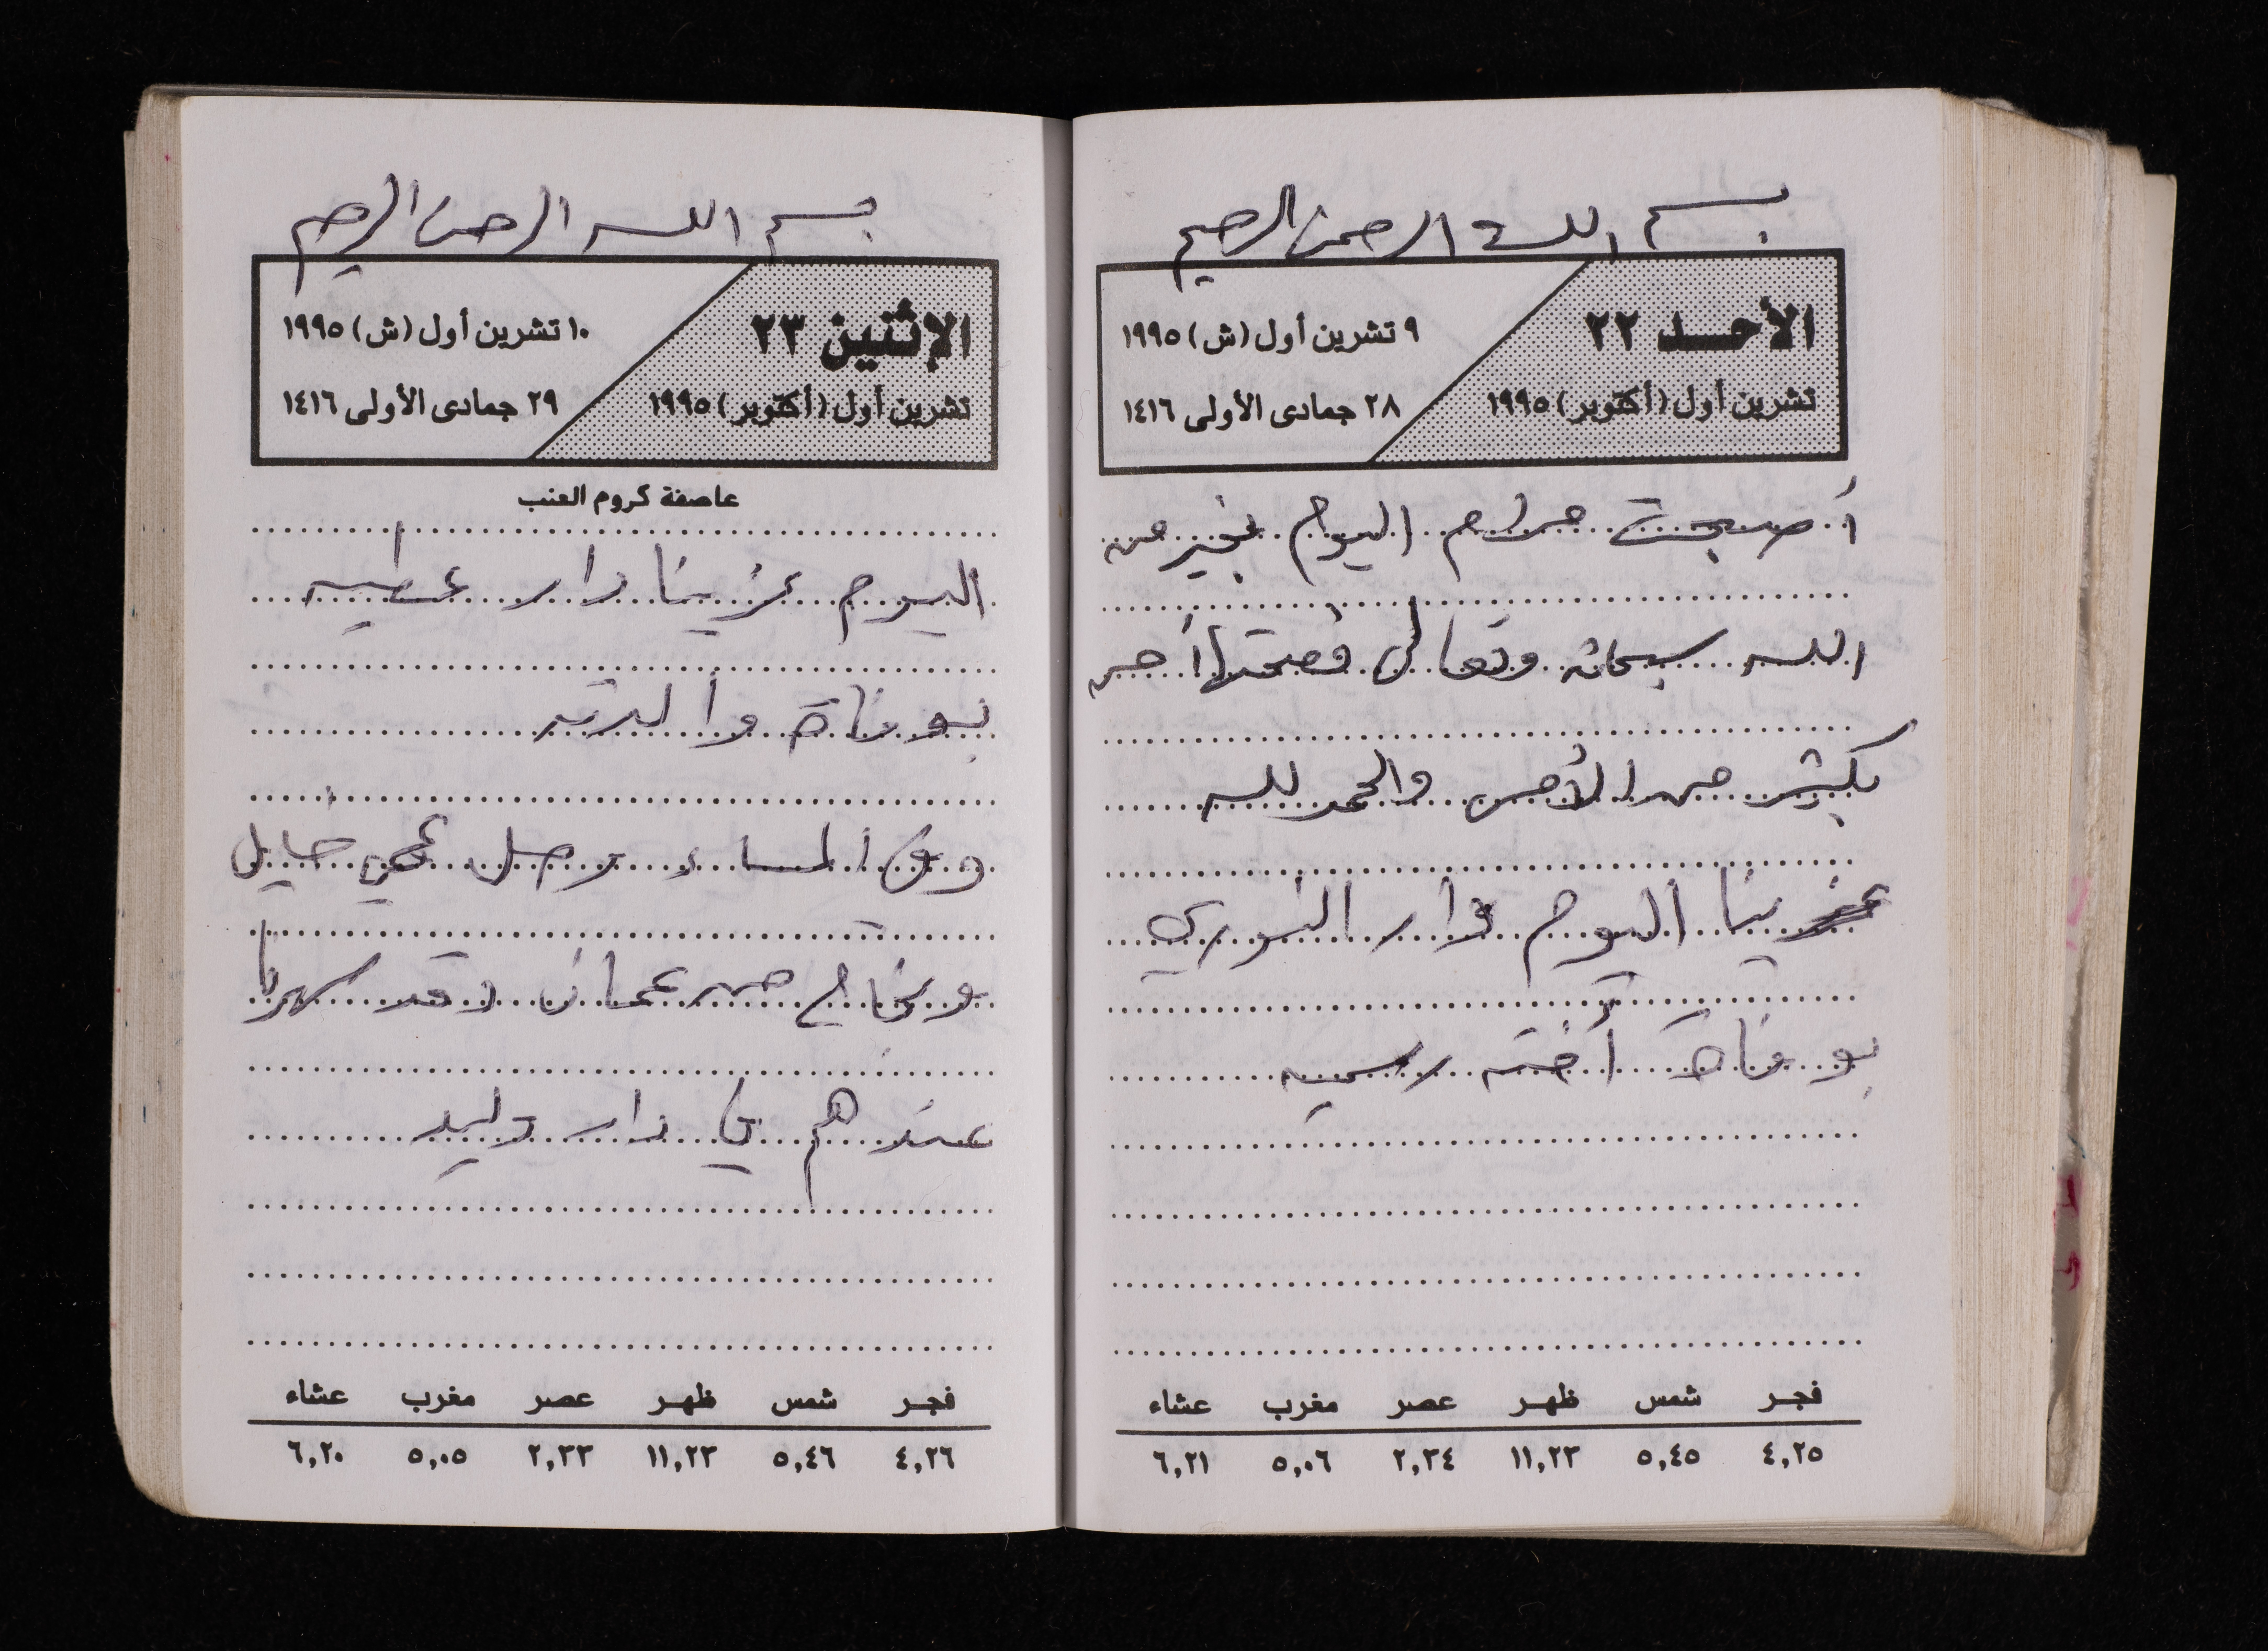 بسم الله الرحمن الرحيم
الأحد ٢٢
تشرين أول (أكتوبر) ١٩٩٥
٩ تشرين أول (ش) ١٩٩٥
٢٨ جمادى الأولى ١٤١٦
أصبحت مرام اليوم بخير من
الله سبحانه وتعالى وصحتها أحسن
بكثير من الأمس والحمد لله
عزينا اليوم دار النوري
بوفاة أخته رسميه
فجر شمس ظهر عصر مغرب عشاء
٤,٢٥ ٥,٤٥ ١١,٢٣ ٢,٣٤ ٥,٠٦ ٦,٢١
بسم الله الرحمن الرحيم
الإثنين ٢٣
تشرين أول (أكتوبر) ١٩٩٥
١٠ تشرين أول (ش) ١٩٩٥
٢٩ جمادى الأولى ١٤١٦
عاصفة كروم العنب
اليوم عزينا دار عطيه
بوفاة والدته
وفي المساء وصل عمي خليل
و من عمان وقد سهرنا
عندهم في دار وليد
فجر شمس ظهر عصر مغرب عشاء
٤,٢٦ ٥,٤٦ ١١,٢٣ ٢,٣٣ ٥,٠٥ ٦,٢٠